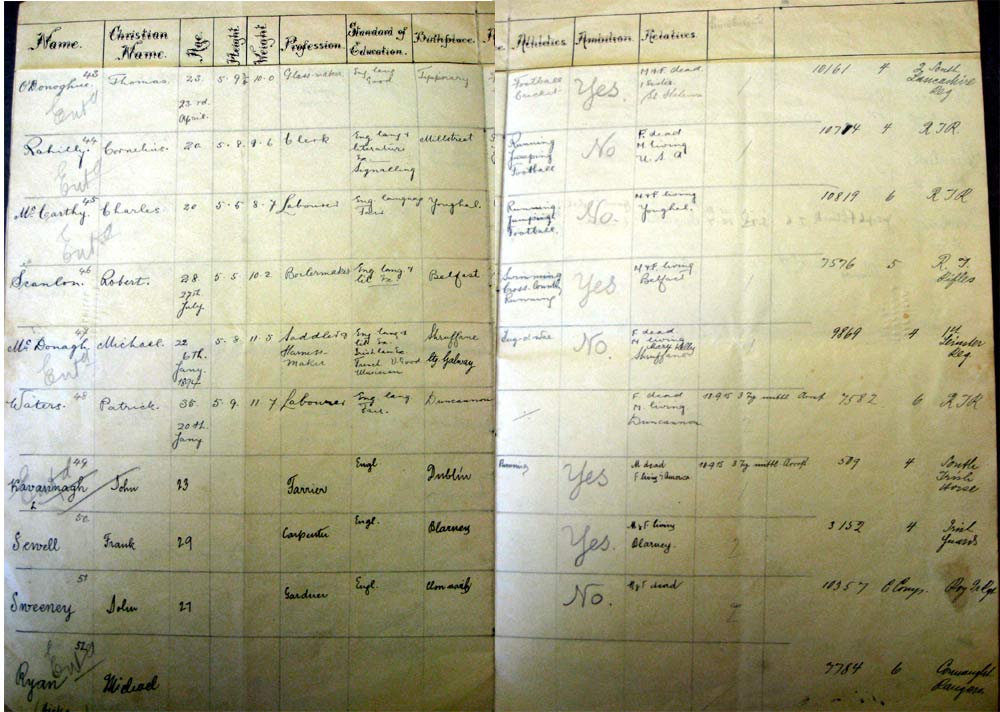 Name. Christian Name. Age. Height Weight Profession Standard of Education. Birthplace. Athletics Ambition. Relatives.
43
O'Donoghue Thomas 23. 5. 9½ 10.0 Glass maker Eng lang Good Tipperary Football Cricket Yes. M & F. dead. 1 Sister St Helens 10161 4 2 South Lancashire Reg
23rd. April.
Ent'd
44
Rahilly. Cornelius. 20. 5. 8. 9. 6 Clerk Eng lang & literature Ex Signalling Millstreet Running Jumping Football No F. dead M. living U.S.A. 4 R I R.
Ent'd
45
McCarthy. Charles. 20 5. 5 8. 7 Labourer Eng. language Fair Youghal. Running Jumping Football. No. M & F living Youghal. 10819 6 R I R
Ent'd
46
Scanlon. Robert. 28. 5. 5 10.2 Boilermaker Eng lang & lit Ex Belfast Swimming Cross Country Running Yes M & F. living Belfast 7576 5 R. I. Rifles
27th July.
47
McDonagh Michael. 22 5. 8 11. 5 Saddler & Harness Maker Eng lang & lit Ex. Irish French V. Good Musician Shruffane Co. Galway Tug-o-war No. F. dead M living Shruffane 9869 4 1st Leinster Reg
6th. Jany. 1894
Ent'd
48
Waters. Patrick. 35. 5. 9. 11. 7 Labourer Eng lang Fair. Duncannon F. dead M. living Duncannon 18.9.15 7582 6 R I R
20th. Jany
49
Kavannagh John 23 Farrier Engl. Dublin Running Yes M dead F living America 18.9.15 589 4 South Irish Horse
50
Sewell Frank 29 Carpenter Engl. Blarney Yes. M & F living Blarney. 3152 4 Irish Guards
51
Sweeney John 27 Gardner Engl. No. M & F dead 10357 C Comp.
52
Ryan Michael 7784 6 Connaught Rangers
Ent'd